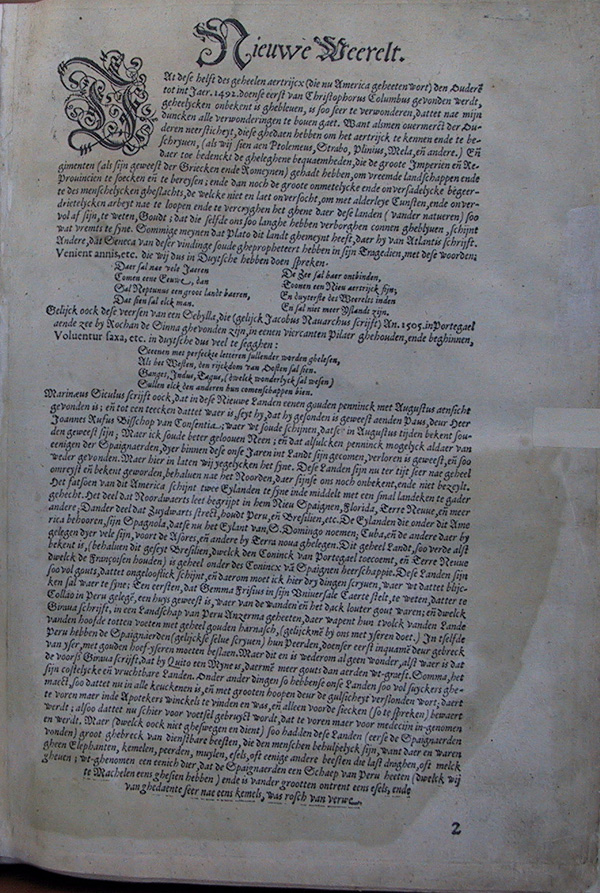 Nieuwe Weerelt.
At dese helft des geheelen aertrijcx (die nu America geheeten wort) den Ouderē
tot int Jaer. 1492. doense eerst van Christophorus Columbus gevonden werdt,
geheelycken onbekent is ghebleuen, is soo seer te verwonderen, dattet nae mijn
duncken alle verwonderingen te bouen gaet. Want alsmen ouermerct der Ou-
deren neersticheyt, diese ghedaen hebben om het aertrijck te kennen ende te be-
schryuen, (als wij sien aen Ptolemeus, Strabo, Plinius, Mela, eñ andere.) Eñ
daer toe bedenckt de gheleghene bequaemheden, die de groote Imperien eñ Re-
gimenten (als sijn geweest der Griecken ende Romeynen) gehadt hebben, om vreemde landschappen ende
Prouincien te soecken eñ te bereysen; ende dan noch de groote onmetelycke ende onversadelycke begeer-
te des menschelycken gheslachts, de welcke niet en laet onversocht, om met alderleye Cunsten, ende onver-
drietelycken arbeyt nae te loopen ende te vercryghen het ghene daer dese landen (vander natueren) soo
vol af sijn, te weten, Goudt; dat die selfde ons soo langhe hebben verborghen connen ghebluen, schijnt
wat vremts te sijne. Sommige meynen dat Plato dit landt ghemeynt heeft, daer hy van Atlantis schrijft.
Andere, dat Seneca van deser vindinge soude ghepropheteert hebben in sijn Tragedien, met dese woorden;
Venient annis, etc. die wij dus in Duytsche hebben doen spreken.
Daer sal nae vele Jaeren
Comen eene Eeuwe, dan
Sal Neptunus een groot landt baeren,
Dat sien sal elck man.
De Zee sal haer ontbinden,
Toonen een Nieu aertrijck sijn;
En buyterste des Weerelts inden
En sal niet meer Yslandt zijn.
Gelijck oock dese veersen van een Sebylla, die (gelijck Jacobus Nauarchus scrijft) An. 1505. in Portegael
aende zee by Rochan de Sinna ghevonden zijn, in eenen viercanten Pilaer ghehouden, ende beghinnen,
Voluentur saxa, etc. in duytsche dus veel te segghen:
Steenen met perfeckte letteren sullender worden ghelesen,
Als het Westen, den rijckdom van Oosten sal sien.
Ganges, Indus, Tagus, (dwelck wonderlyck sal wesen)
Sullen elck den anderen hun comenschappen bien.
Marinæus Siculus scrijft oock, dat in dese Nieuwe Landen eenen gouden penninck met Augustus aensicht
gevonden is; eñ tot een teecken dattet waer is seyt hy, dat hy gesonden is geweest aenden Paus, deur Heer
Joannes Rufus Bisschop van Consentia; waer we soude schijnen, datse in Augustus tijden bekent sou-
den geweest sijn; Maer ick soude beter gelooven Neen; en dat alsulcken penninck mogelyck aldaer van
eenigen der Spaignaerden, dyer binnen dese onse Jaren int Landt sijn gecomen, verloren is geweest, eñ soo
weder gevonden. Maer hier in laten wij yegelycken het sijne. Dese Landen sijn nu ter tijt seer nae geheel
omreyst eñ bekent geworden, behaluen nae het Noorden, daer sijnse ons noch onbekent, ende niet bezeylt.
Het fatsoen van dit America schijnt twee Eylanden te sijne inde middelt met een smal landeken te gader
gehecht. Het deel dat Noordwaerts leet begrijpt in hem Nieu Spaignen, Florida, Terre Neuue, eñ meer
andere; Dander deel dat Zuydwarts strect, houdt Peru, eñ Bresilien, etc. De Eylanden die onder dit Ame
rica behooren, sijn Spagnola, datse nu het Eylant van S. Domingo noemen, Cuba, en de andere daer by
gelegen dyer vele sijn, voort de Açores, eñ andere by Terra noua ghelegen. Dit geheel Landt, soo verde alst
bekent is, (behaluen dit geseyt Bresilien, dwelck den Coninck van Portegael toecoemt, eñ Terre Neuue
dwelck de Françoisen houden) is geheel onder des Conincx vā Spaignen heerschappie. Dese Landen sijn
soo vol gouts, dattet ongelooflick schijnt, eñ daerom moet ick hier dry dingen scryuen, waer wt dattet blijc-
ken sal waer te sijne; Een eersten, dat Gemma Frisius in sijn Vniuersale Caerte stelt, te weten, datter te
Collao in Peru gelegē, een huys geweest is, waer van de wanden eñ het dack louter gout waren; eñ dwelck
Giraua schrijft, in een Landschap van Peru Anzerma geheeten, daer wapent hun tvolck vanden Lande
vanden hoofde totten voeten met geheel gouden harnasch, (gelijckmē by ons met yseren doet.) In tselfde
Peru hebben de Spaignaerden (gelijckse selue scryuen) hun Peerden, doenser eerst inquamē deur gebreck
van yser, met gouden hoef-yseren moeten beslaen. Maer dit en is wederom al geen wonder, alst waer is dat
de voorss Giraua scrijft, dat by Quito een Myne is, daermē meer gouts dan aerden wt-graeft. Somma, het
sijn costelycke eñ vruchtbare Landen. Onder ander dingen so hebbense onse Landen soo vol suyckers ghe-
maect, soo dattet nu in alle keuckenen is, eñ met grooten hoopen deur de gulsicheyt verslonden wort; daert
te voren maer inde Apotekers winckels te vinden en was, eñ alleen voorde siecken (so te spreken) bewaert
werdt; alsoo dattet nu schier voor voetsel gebruyct wordt, dat te voren maer voor medecijn in-genomen
en werdt. Maer (dwelck oock niet ghesweghen en dient) soo hadden dese Landen (eerse de Spaignaerden
vonden) groot ghebreck van dienstbare beesten, die den menschen behulpelyck sijn, want daer en waren
gheen Elephanten, kemelen, peerden, muylen, esels, oft eenige andere beesten die last droghen, oft melck
gheuen; wt-ghenomen een eenich dier, dat de Spaignaerden een Schaep van Peru heeten (dwelck wij
te Machelen eens ghesien hebben) ende is vander grootten ontrent eens esels, ende
van ghedaente seer nae eens kemels, was rosch van verwe.
2